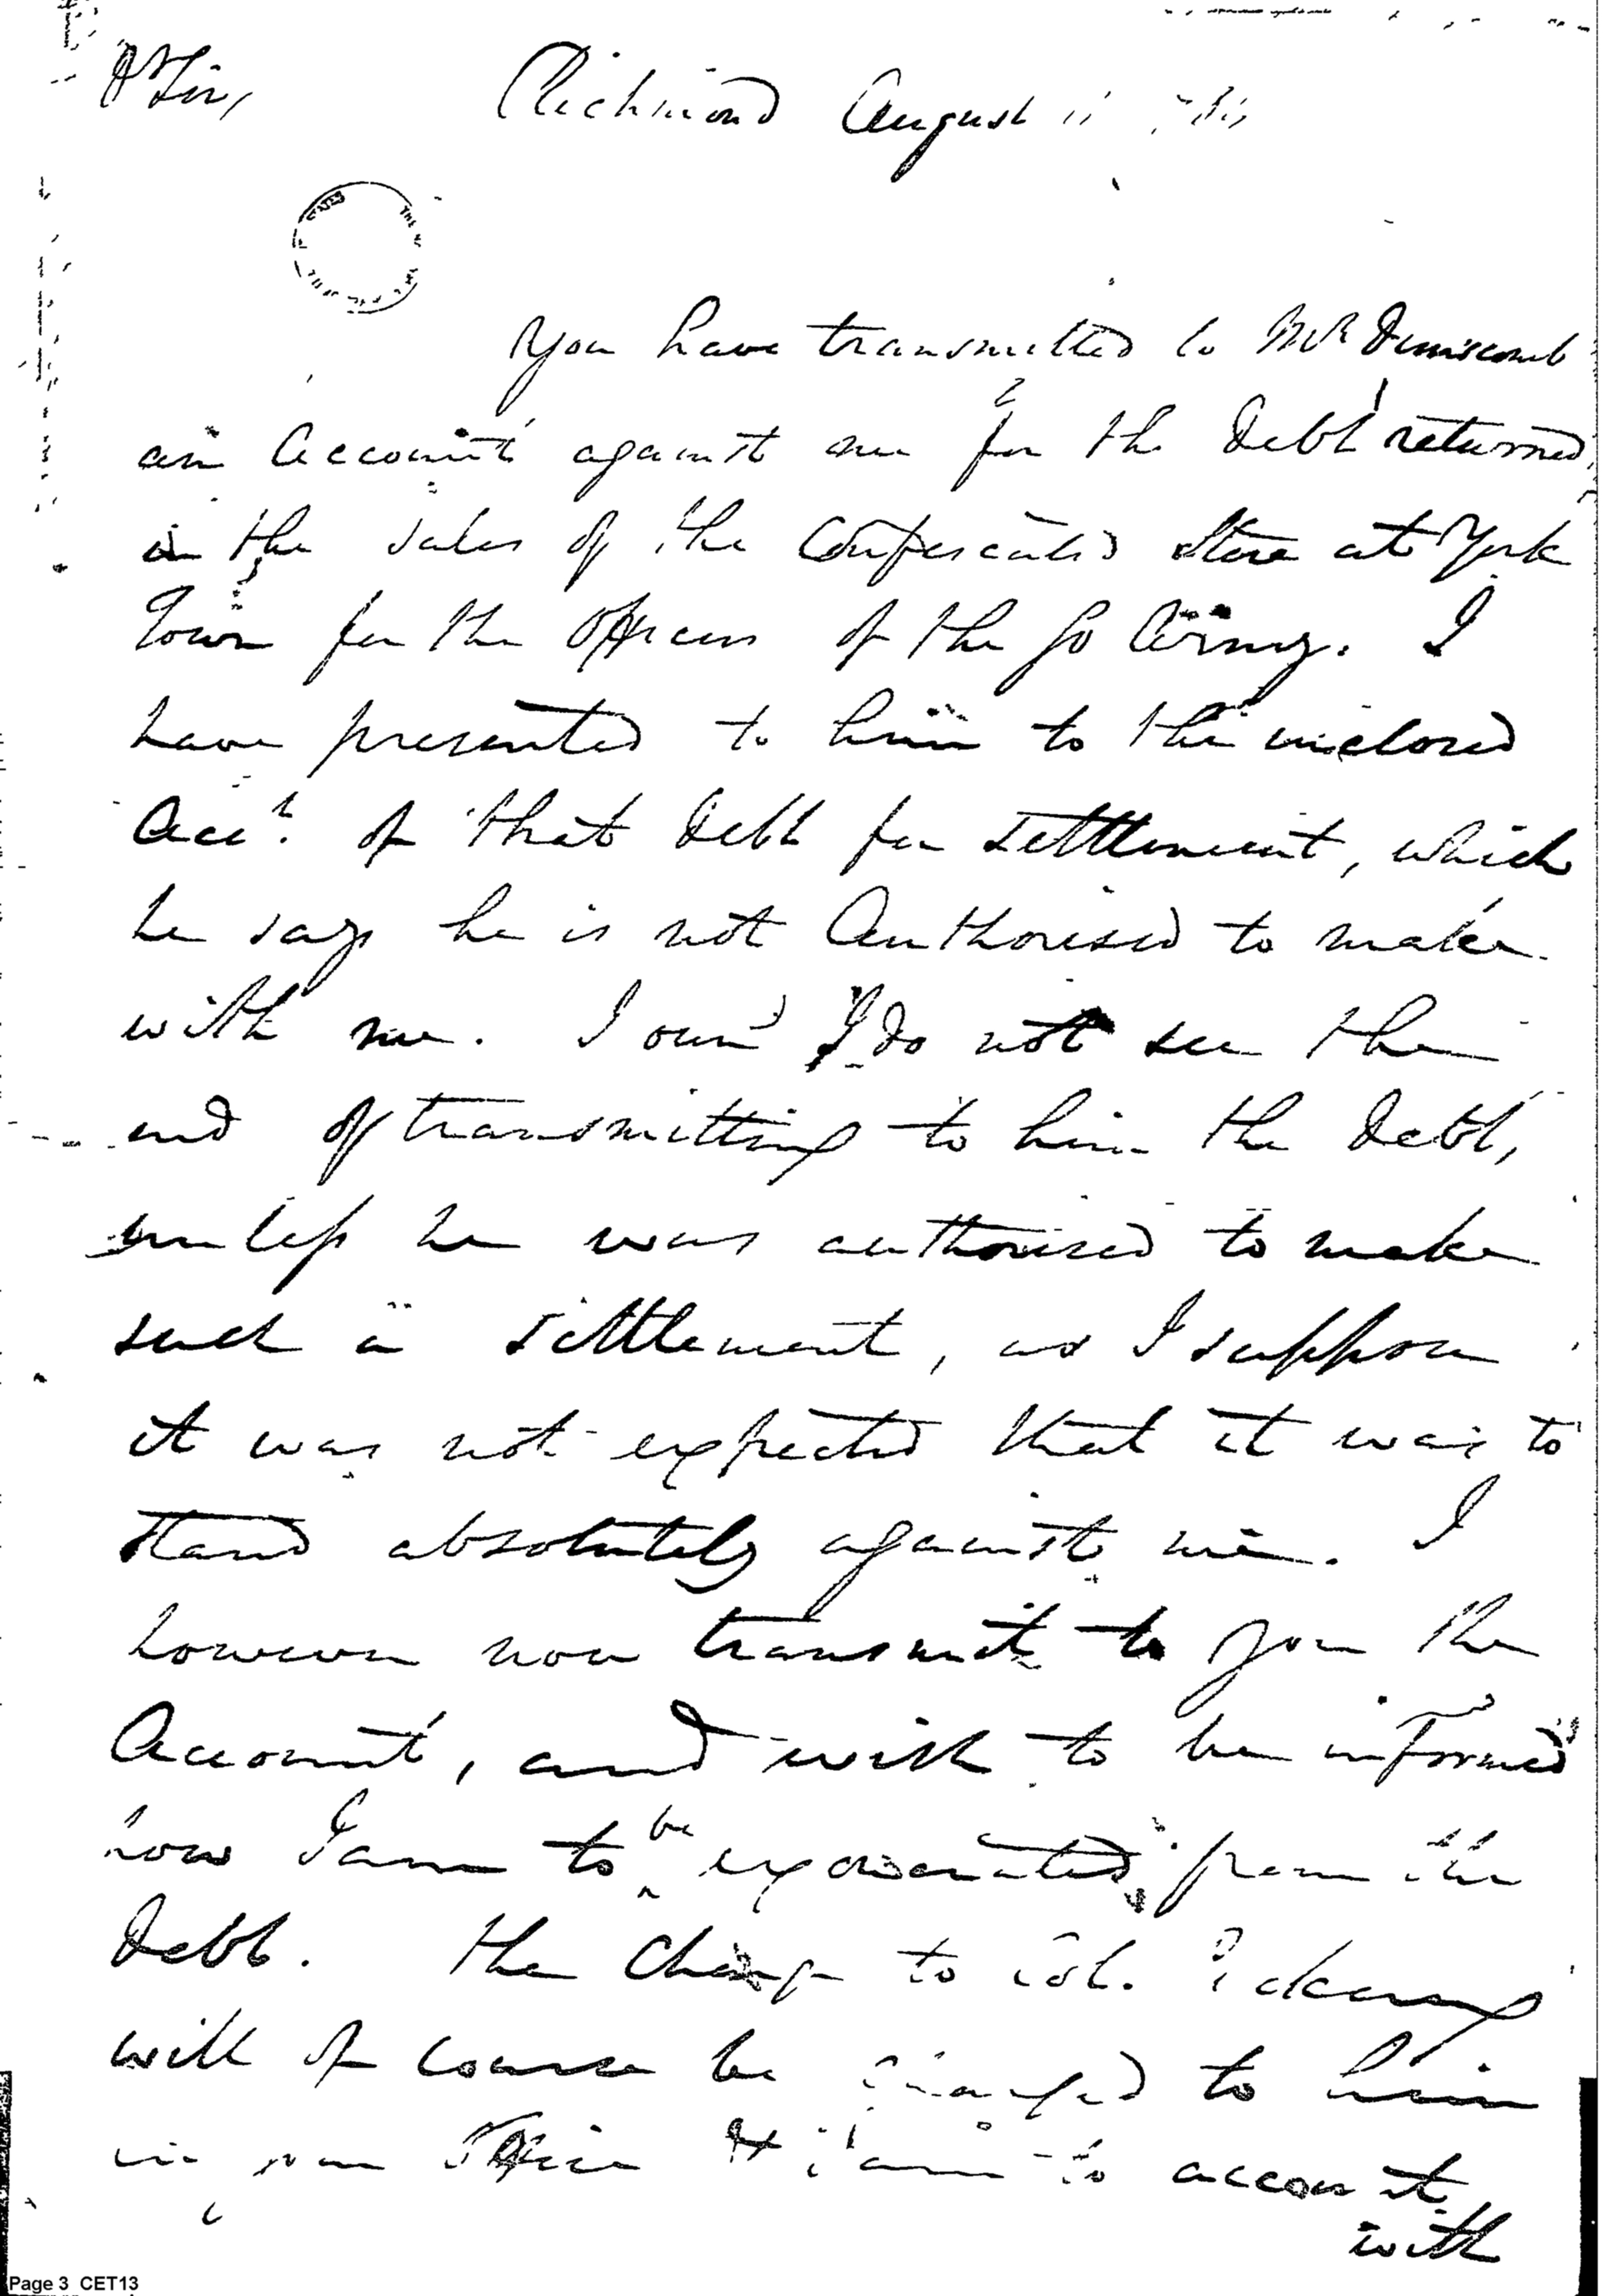 Dr Sir,
Richmond August 11
You have transmitted to Mr Dunscomb
an Account against me for the Debt returned
in the sales of the Confiscated Store at York
Town for the Officers of the So Army. I
have presented to him to the inclosed
Acct. of that Debt for settlement, which
he says he is not Authorised to make
with me. I own I do not see the
end of transmitting to him the Debt,
unless he was authorised to make
such a settlement, as I suppose
it was not expected that it was to
stand absolutely against me. I
however now transmit to you the
Account, and wish to be informed
how I am to be exonerated from the
Debt. The Charge to Col. Pickering
will of course be charged to him
in your Office & I am to account
with
Page 3 CET13